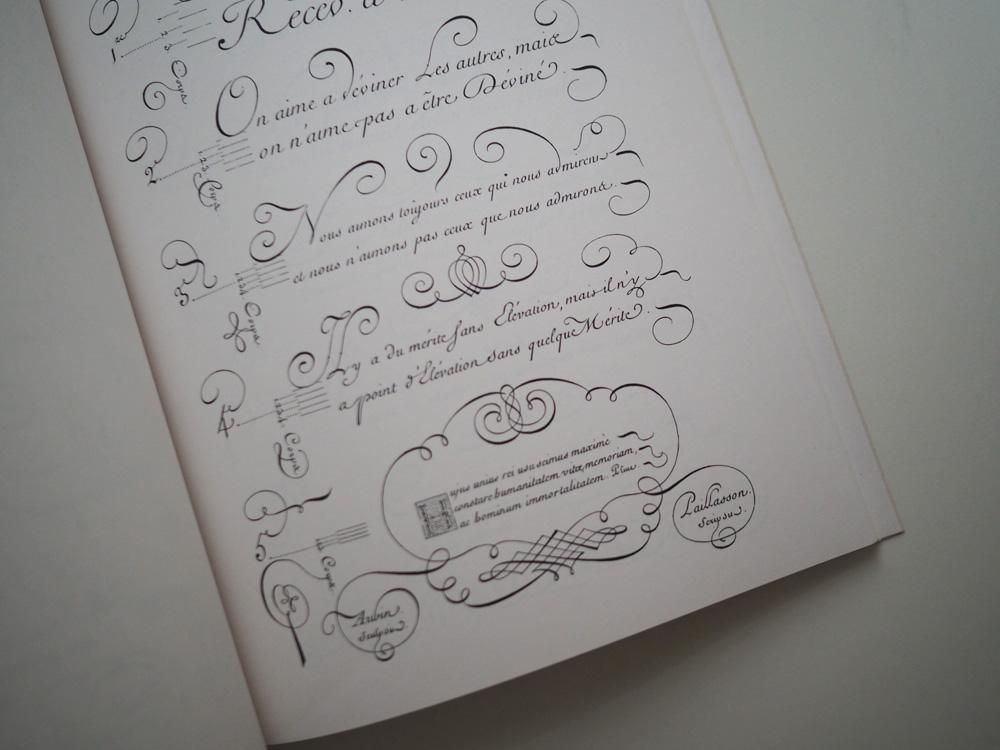 Recev.
1
2 3 Corps
On aime a déviner Les autres, maice
on n'aime pas a être Déviné.
2
1 2 3 Corps
Nous aimons toujours ceux qui nous admirent
et nous n'aimons pas ceux que nous admirons.
3
1 2 3 4 Corps
Il y a du mérite sans Elévation, mais il n'y
a point d'Elévation sans quelque Mérite.
4
1 2 3 4 Corps
Hujus unius rei usu scimus maximè
constare humanitatem vitæ, memoriam,
ac hominum immortalitatem. Plin.
5
Corps
Paillasson.
Scripsit.
Aubin.
Sculpsit.